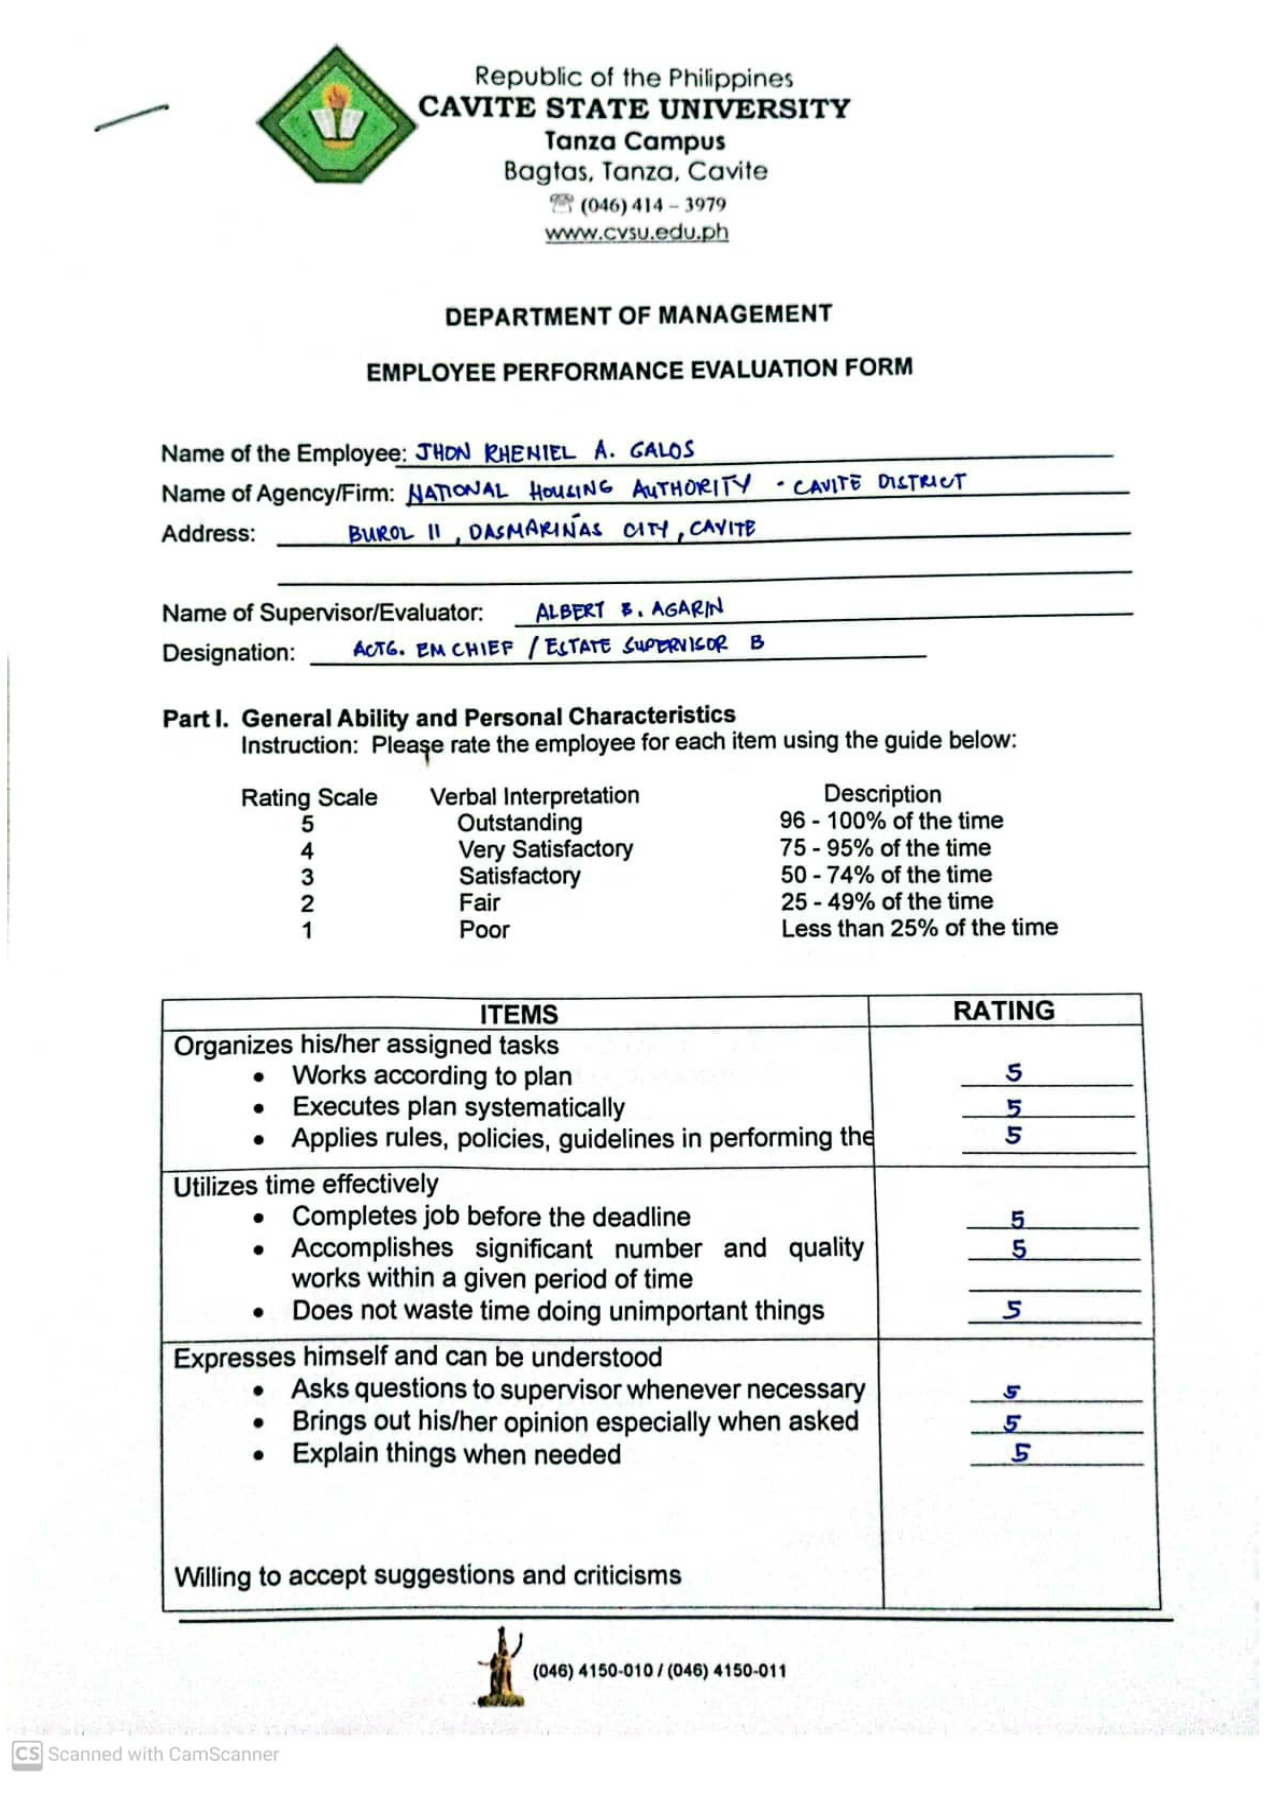 Republic of the Philippines
CAVITE STATE UNIVERSITY
Tanza Campus
Bagtas, Tanza, Cavite
☏ (046) 414 – 3979
www.cvsu.edu.ph
DEPARTMENT OF MANAGEMENT
EMPLOYEE PERFORMANCE EVALUATION FORM
Name of the Employee: JHON RHENIEL A. GALOS
Name of Agency/Firm: NATIONAL HOUSING AUTHORITY - CAVITE DISTRICT
Address: BUROL II, DASMARIÑAS CITY, CAVITE
Name of Supervisor/Evaluator: ALBERT B. AGARIN
Designation: ACTG. EM CHIEF / ESTATE SUPERVISOR B
Part I. General Ability and Personal Characteristics
Instruction: Please rate the employee for each item using the guide below:
Rating Scale Verbal Interpretation Description
5 Outstanding 96 - 100% of the time
4 Very Satisfactory 75 - 95% of the time
3 Satisfactory 50 - 74% of the time
2 Fair 25 - 49% of the time
1 Poor Less than 25% of the time
ITEMS RATING
Organizes his/her assigned tasks
• Works according to plan 5
• Executes plan systematically 5
• Applies rules, policies, guidelines in performing the 5
Utilizes time effectively
• Completes job before the deadline 5
• Accomplishes significant number and quality 5
works within a given period of time
• Does not waste time doing unimportant things 5
Expresses himself and can be understood
• Asks questions to supervisor whenever necessary 5
• Brings out his/her opinion especially when asked 5
• Explain things when needed 5
Willing to accept suggestions and criticisms
(046) 4150-010 / (046) 4150-011
CS Scanned with CamScanner